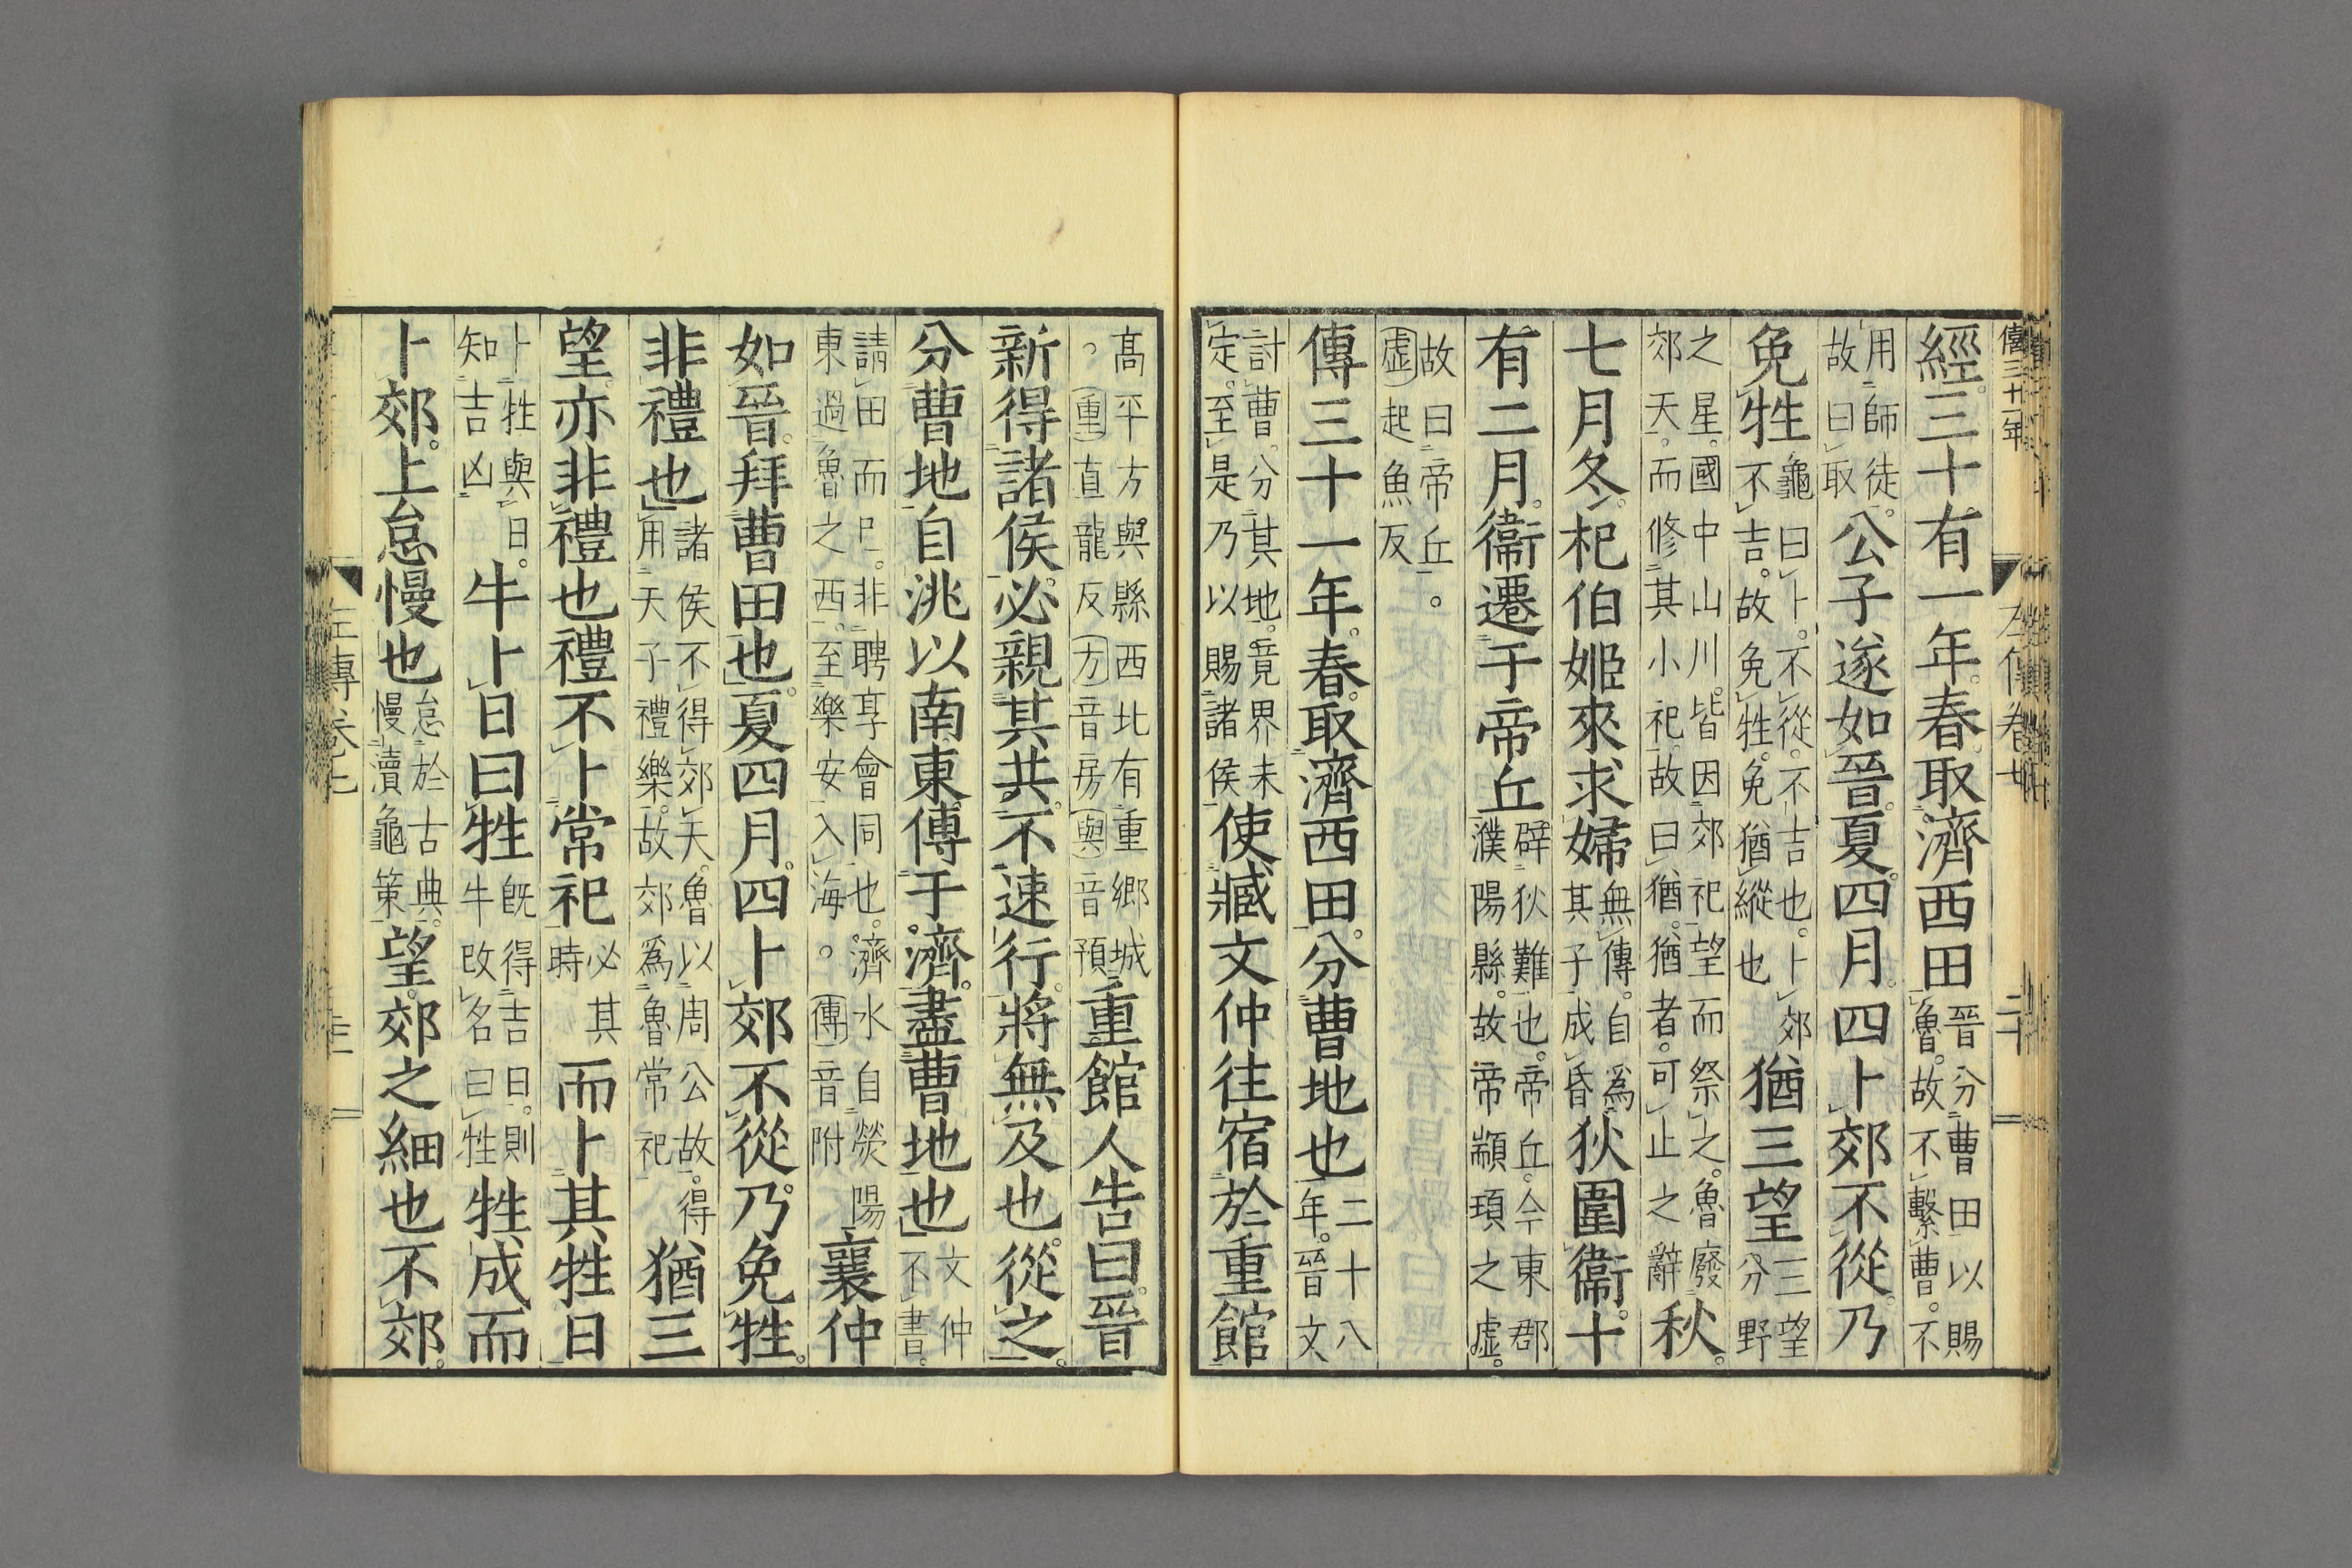 僖三十一年
經。三十有一年。春。取濟西田晉分曹田以賜魯。故不繫曹。不
用師徒。故曰取公子遂如晉。夏四月。四卜郊不從。乃
免牲龜曰卜。不從。不吉也。卜郊不吉。故免牲。免猶縱也猶三望三望分野
之星。國中山川。皆因郊祀望而祭之。魯廢郊天。而修其小祀。故曰猶。猶者。可止之辭秋。
七月冬。杞伯姬來求婦無傳。自爲其子成昏狄圍衞。十
有二月。衞遷于帝丘辟狄難也。帝丘。今東郡濮陽縣。故帝顓頊之虛。
故曰帝丘。虛起魚反
傳三十一年。春。取濟西田。分曹地也二十八年。晉文
討曹。分其地。竟界未定。至是乃以賜諸侯使臧文仲往宿於重館
高平方與縣西北有重鄉城。重直龍反方音房與音預重館人告曰。晉
新得諸侯。必親其共。不速行。將無及也。從之。
分曹地自洮以南東傅于濟。盡曹地也文仲不書。
請田而已。非聘享會同也。濟水自熒陽東過魯之西。至樂安入海。傅音附襄仲
如晉。拜曹田也。夏四月。四卜郊不從。乃免牲。
非禮也諸侯不得郊天。魯以周公故。得用天子禮樂。故郊爲魯常祀猶三
望。亦非禮也禮不卜常祀必其時而卜其牲日
卜牲與日。知吉凶牛卜日曰牲既得吉日。則牛改名曰牲牲成而
卜郊。上怠慢也怠於古典。慢瀆龜策望。郊之細也不郊。
左傳卷七